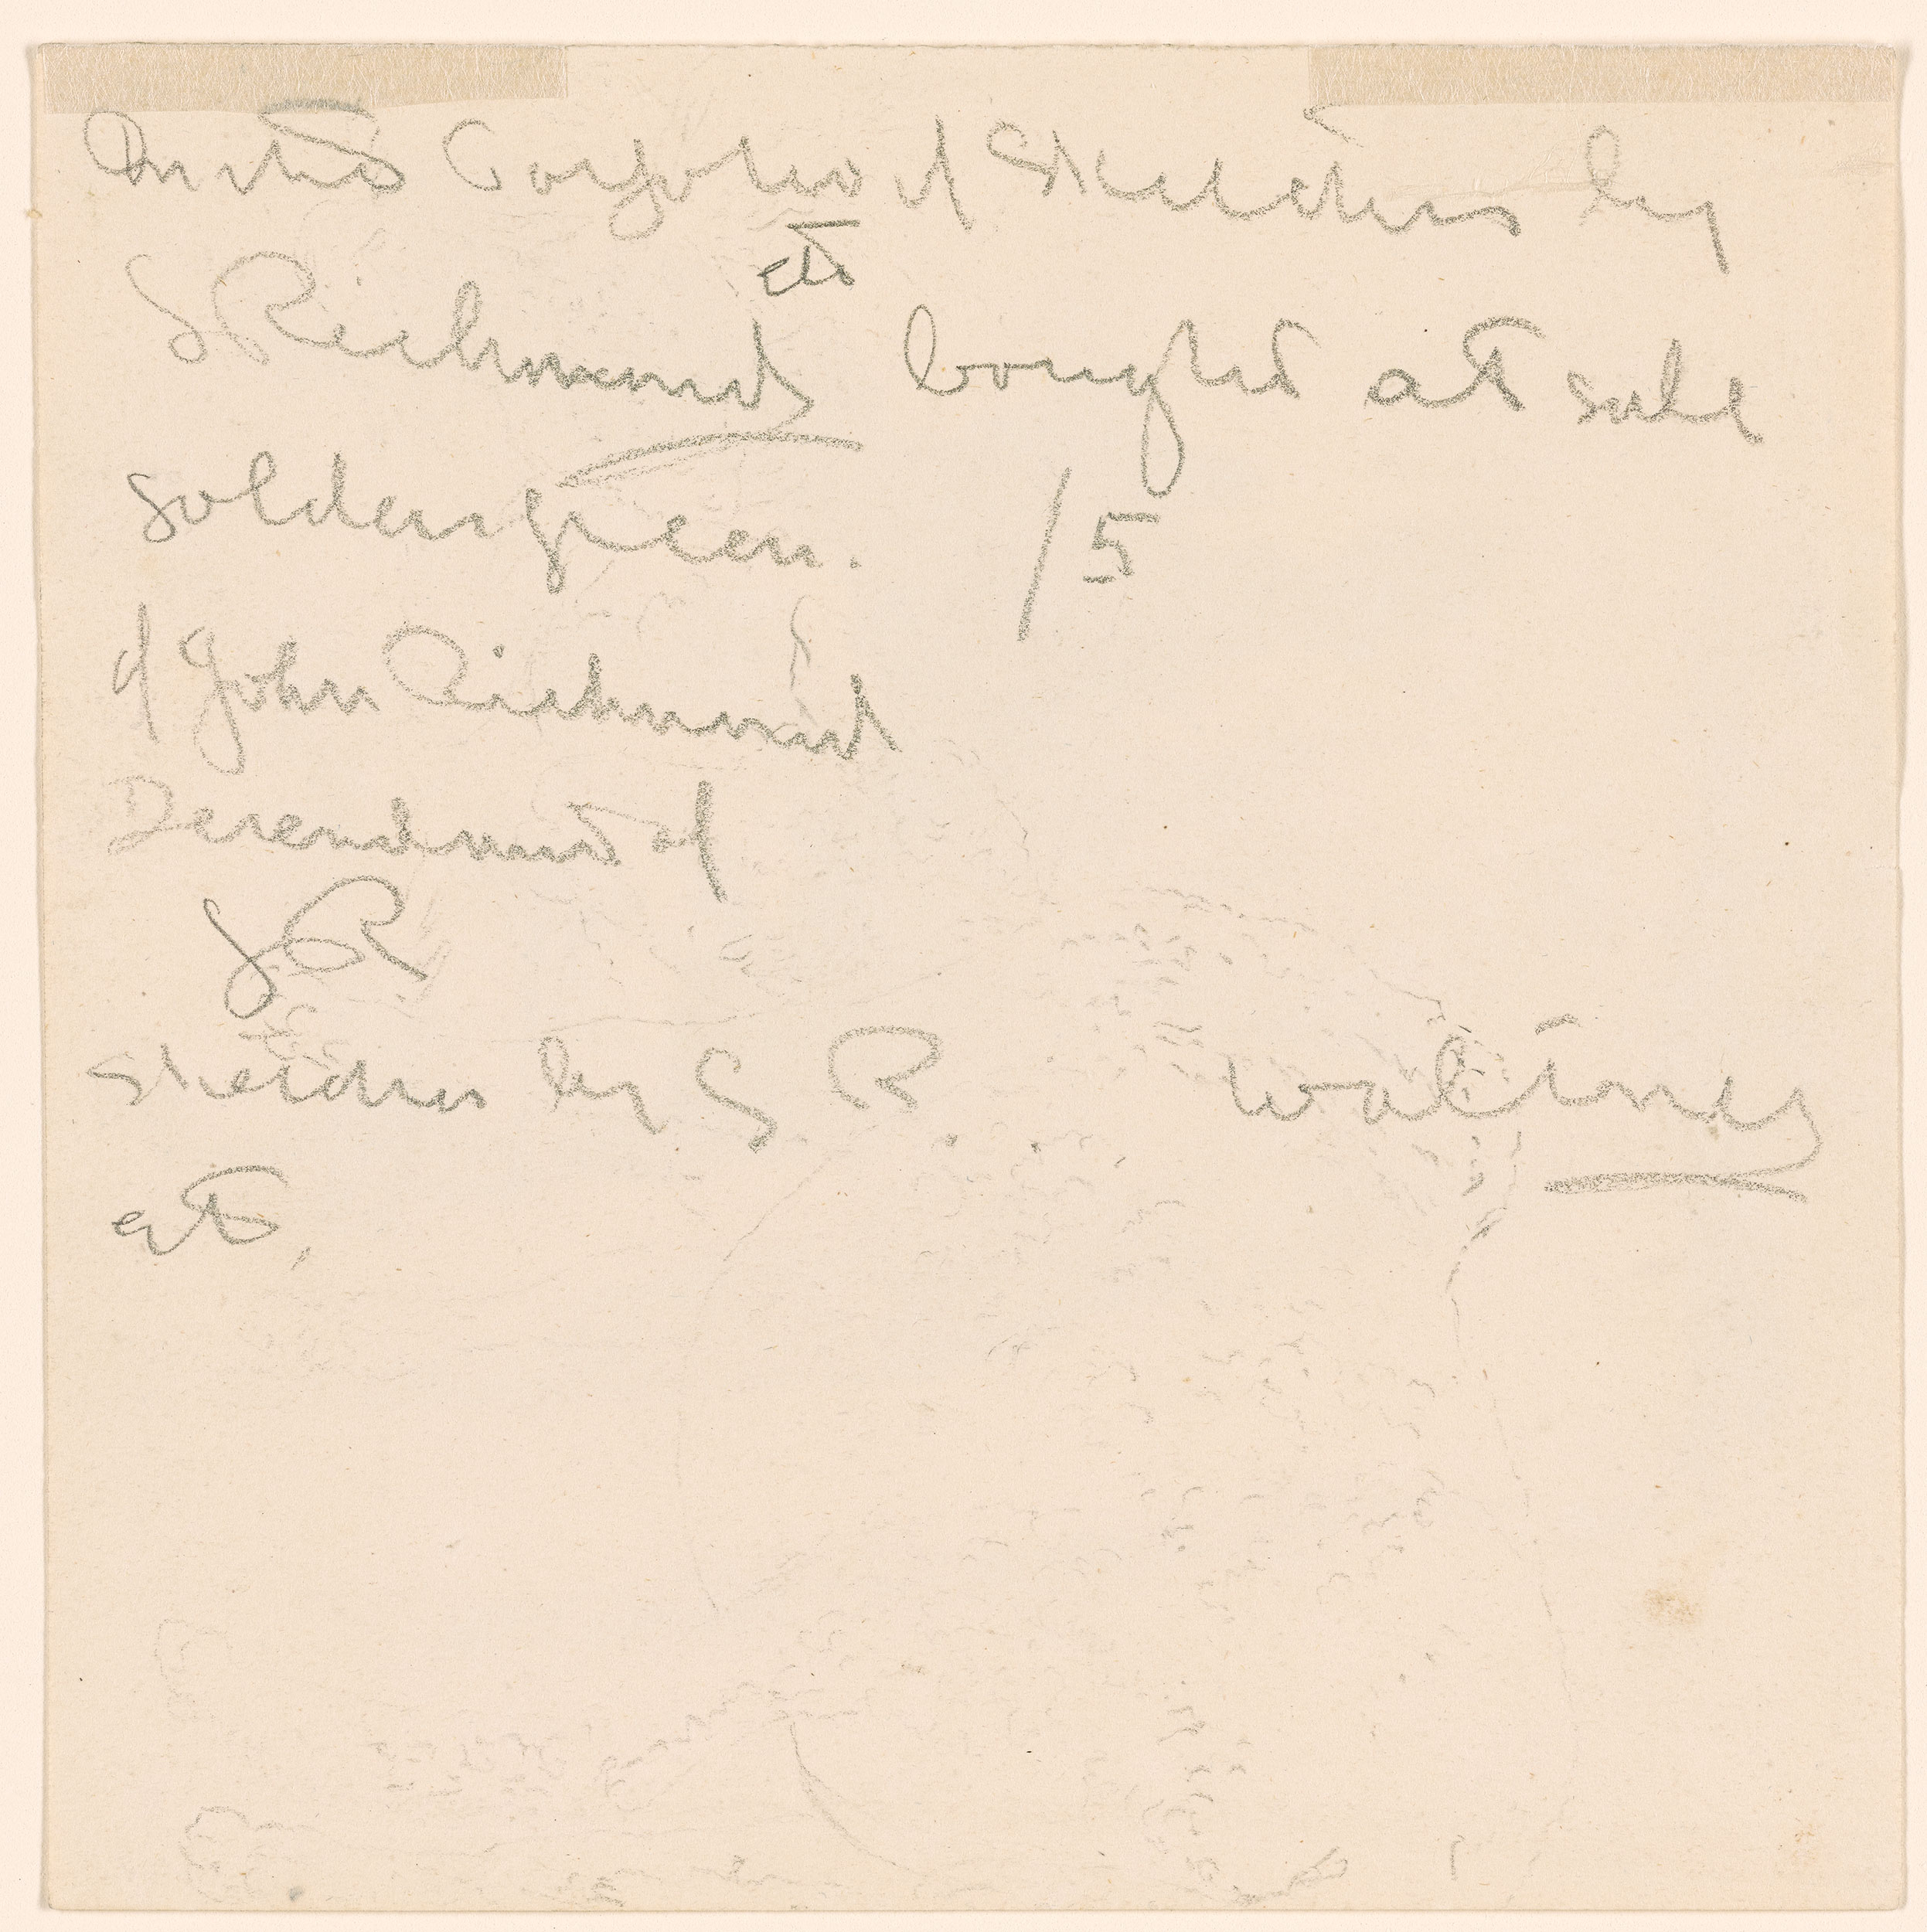 In this Portfolio of Sketches by
etc
G Richmond bought at sale
Goldengreen. / 5
of John Richmond
Descendant of
GR
Sketches by G R.
etc,